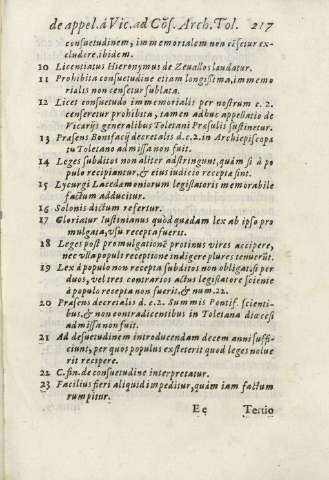 de appel. à Vic. ad Cōs. Arch. Tol. 217
consuetudinem, immemorialem non cēsetur ex-
cludere. ibidem.
10 Licentiatus Hieronymus de Zeuallos laudatur.
11 Prohibita consuetudine etiam longissima, immemo
rialis non censetur sublata.
12 Licet consuetudo immemorialis per nostrum c. 2.
censeretur prohibita, tamen adhuc appellatio de
Vicarijs generalibus Toletani Præsulis sustinetur.
13 Præsens Bonifacij decretalis d. c. 2. in Archiepiscopa
tu Toletano admissa non fuit.
14 Leges subditos non aliter adstringunt, quàm si à po
pulo recipiantur, & eius iudicio receptæ sint.
15 Lycurgi Lacedæmoniorum legislatoris memorabile
factum adducitur.
16 Solonis dictum refertur.
17 Gloriatur Iustinianus quòd quædam lex ab ipso pro
mulgata, vsu recepta fuerit.
18 Leges post promulgationē protinus vires accipere,
nec vlla populi receptione indigere plures tenuerūt.
19 Lex à populo non recepta subditos non obligat si per
duos, vel tres contrarios actus legislatore sciente
à populo recepta non fuerit. & num. 22.
20 Præsens decretalis d. c. 2. Summis Pontif. scienti-
bus, & non contradicentibus in Toletana diœcesi
admissa non fuit.
21 Ad desuetudinem introducendam decem anni suffi-
ciunt, per quos populus exsteterit quod leges nolue
rit recipere.
22 C. fin. de consuetudine interpretatur.
23 Facilius fieri aliquid impeditur, quàm iam factum
rumpitur.
Ee Tertio